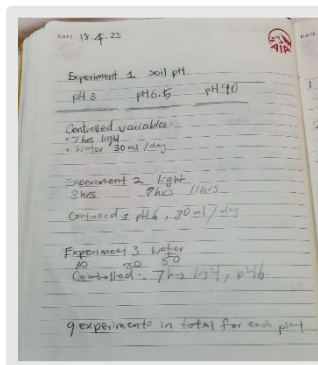 DATE 18.4.23
AIA
Experiment 1 soil pH
pH 3 pH6.5 pH 90
Controlled variables:
• 7 hrs light
• water 30 ml /day
Experiment 2 light
3hrs 11hrs
Controlled = pH6, 30 ml / day
Experiment 3 water
10 30 50
Controlled: 7 hrs , pH6.
9 experiments in total for each plant